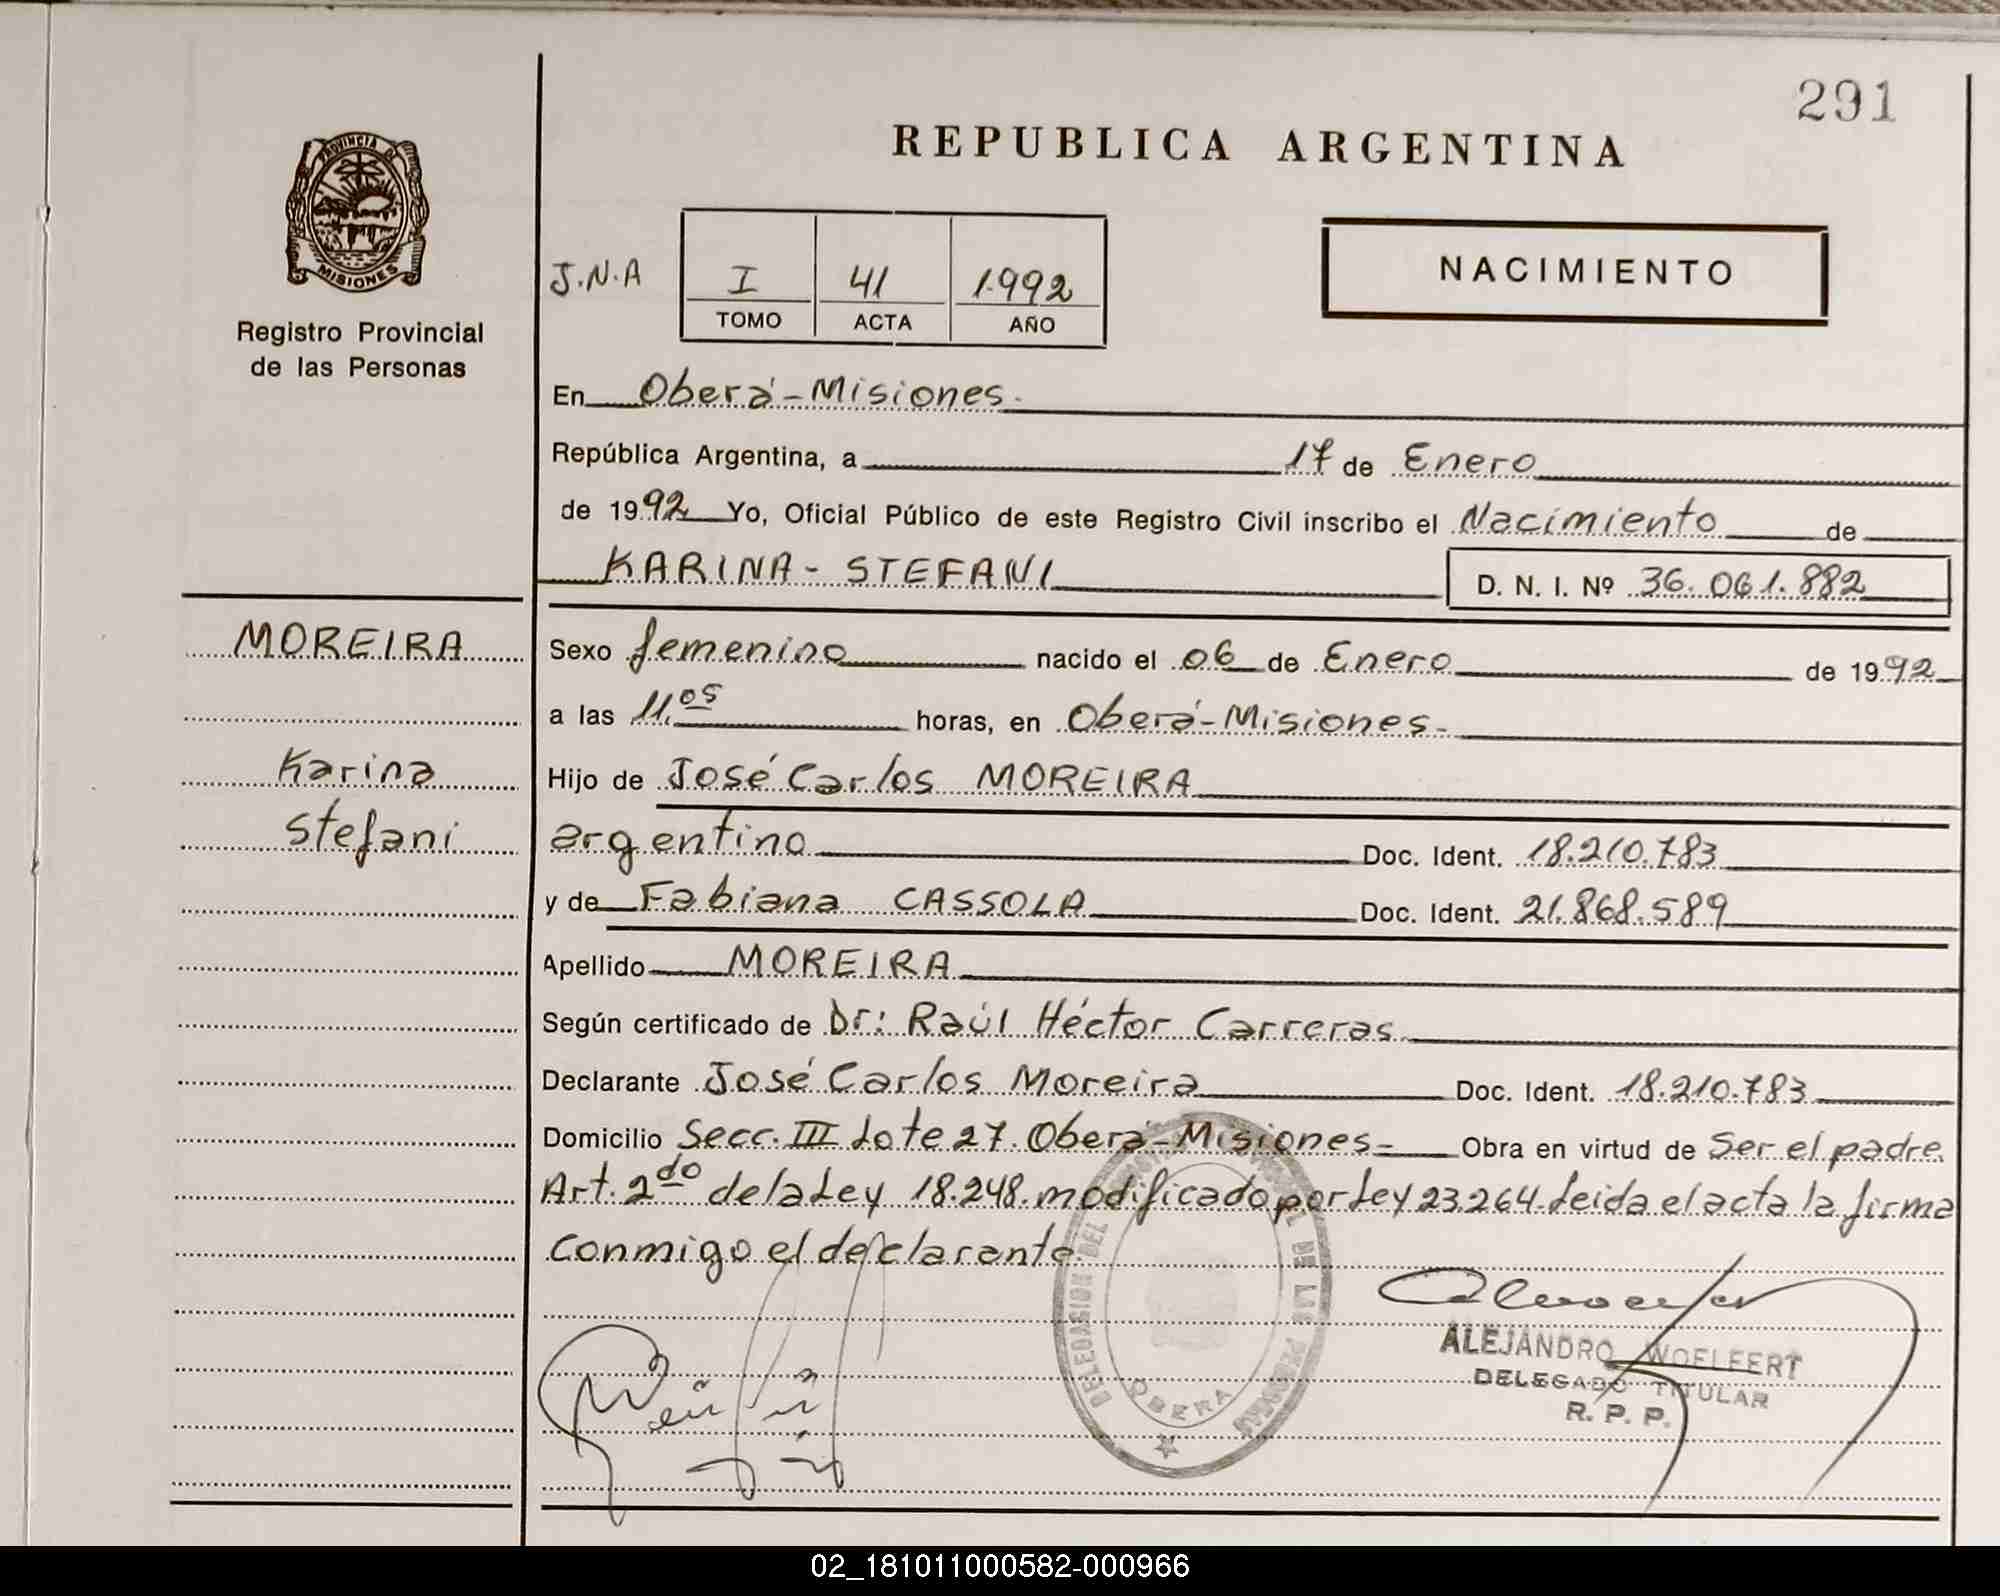 291
REPUBLICA ARGENTINA
PROVINCIA DE
MISIONES
Registro Provincial
de las Personas
J.N.A
I 41 1992
TOMO ACTA AÑO
NACIMIENTO
En Oberá-Misiones.
República Argentina, a 17 de Enero
de 1992 Yo, Oficial Público de este Registro Civil inscribo el Nacimiento de
KARINA- STEFANI
D. N. I. Nº 36.061.882
MOREIRA
Karina
Stefani
Sexo femenino nacido el 06 de Enero de 1992
a las 11.05 horas, en Oberá-Misiones-
Hijo de José Carlos MOREIRA
argentino Doc. Ident. 18.210.783
y de Fabiana CASSOLA Doc. Ident. 21.868.589
Apellido MOREIRA
Según certificado de Dr: Raúl Héctor Carreras
Declarante José Carlos Moreira Doc. Ident. 18.210.783
Domicilio Secc. III Lote 27. Oberá-Misiones- Obra en virtud de Ser el padre.
Art. 2do de la Ley 18.248. modificado por Ley 23.264. Leida el acta la firma
conmigo el declarante.
DELEGASION DEL DE LAS PERSONAS
OBERA
ALEJANDRO WOELFERT
DELEGADO TITULAR
R. P. P.
02_181011000582-000966